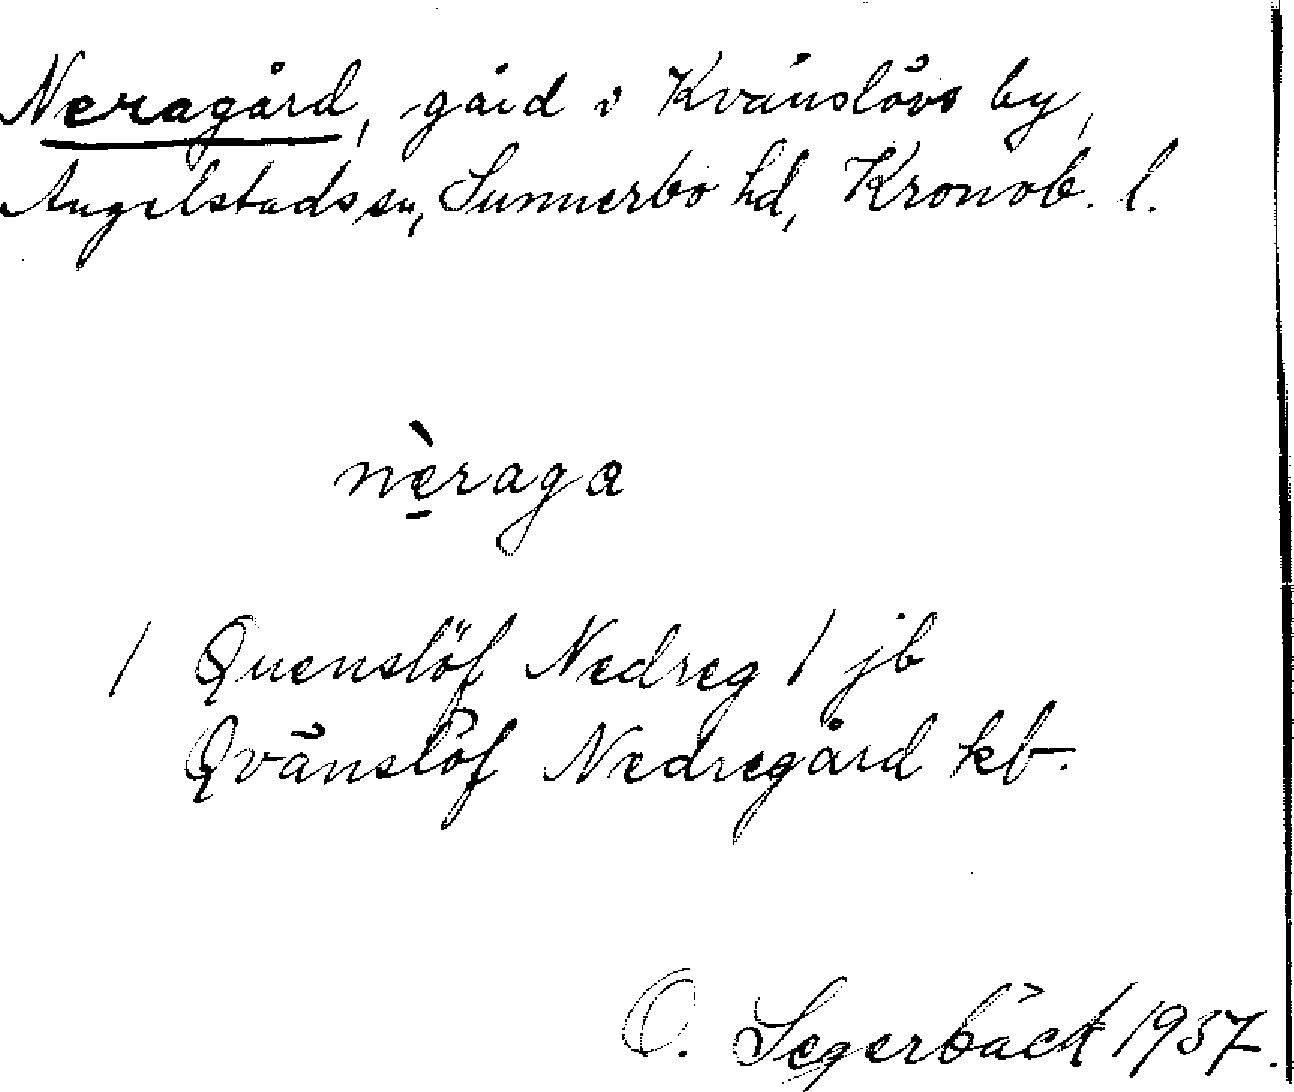 Neragård, gård i Kvänslövs by,
Angelstads sn, Sunnerbo hd, Kronob. l.
nèraga
1 Quenslöf Nedreg 1 jb
Qvänslöf Nedregård kb.
O. Segerbäck 1937.